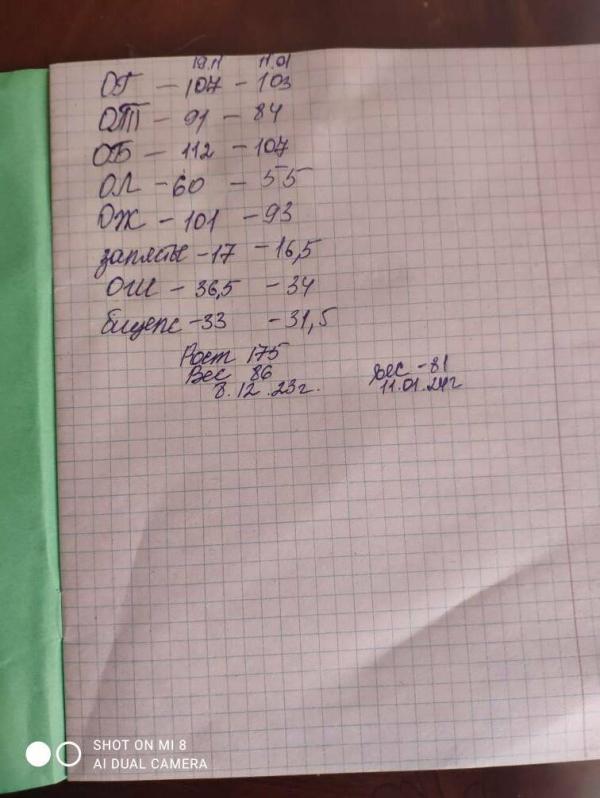 19.11 11.01
ОГ - 107 - 103
ОТ - 91 - 84
ОБ - 112 - 107
ОЛ - 60 - 55
ОЖ - 101 - 93
запястье - 17 - 16,5
ОШ - 36,5 - 34
бицепс - 33 - 31,5
Рост 175
Вес 86
8.12.23г.
вес - 81
11.01.24г
SHOT ON MI 8
AI DUAL CAMERA